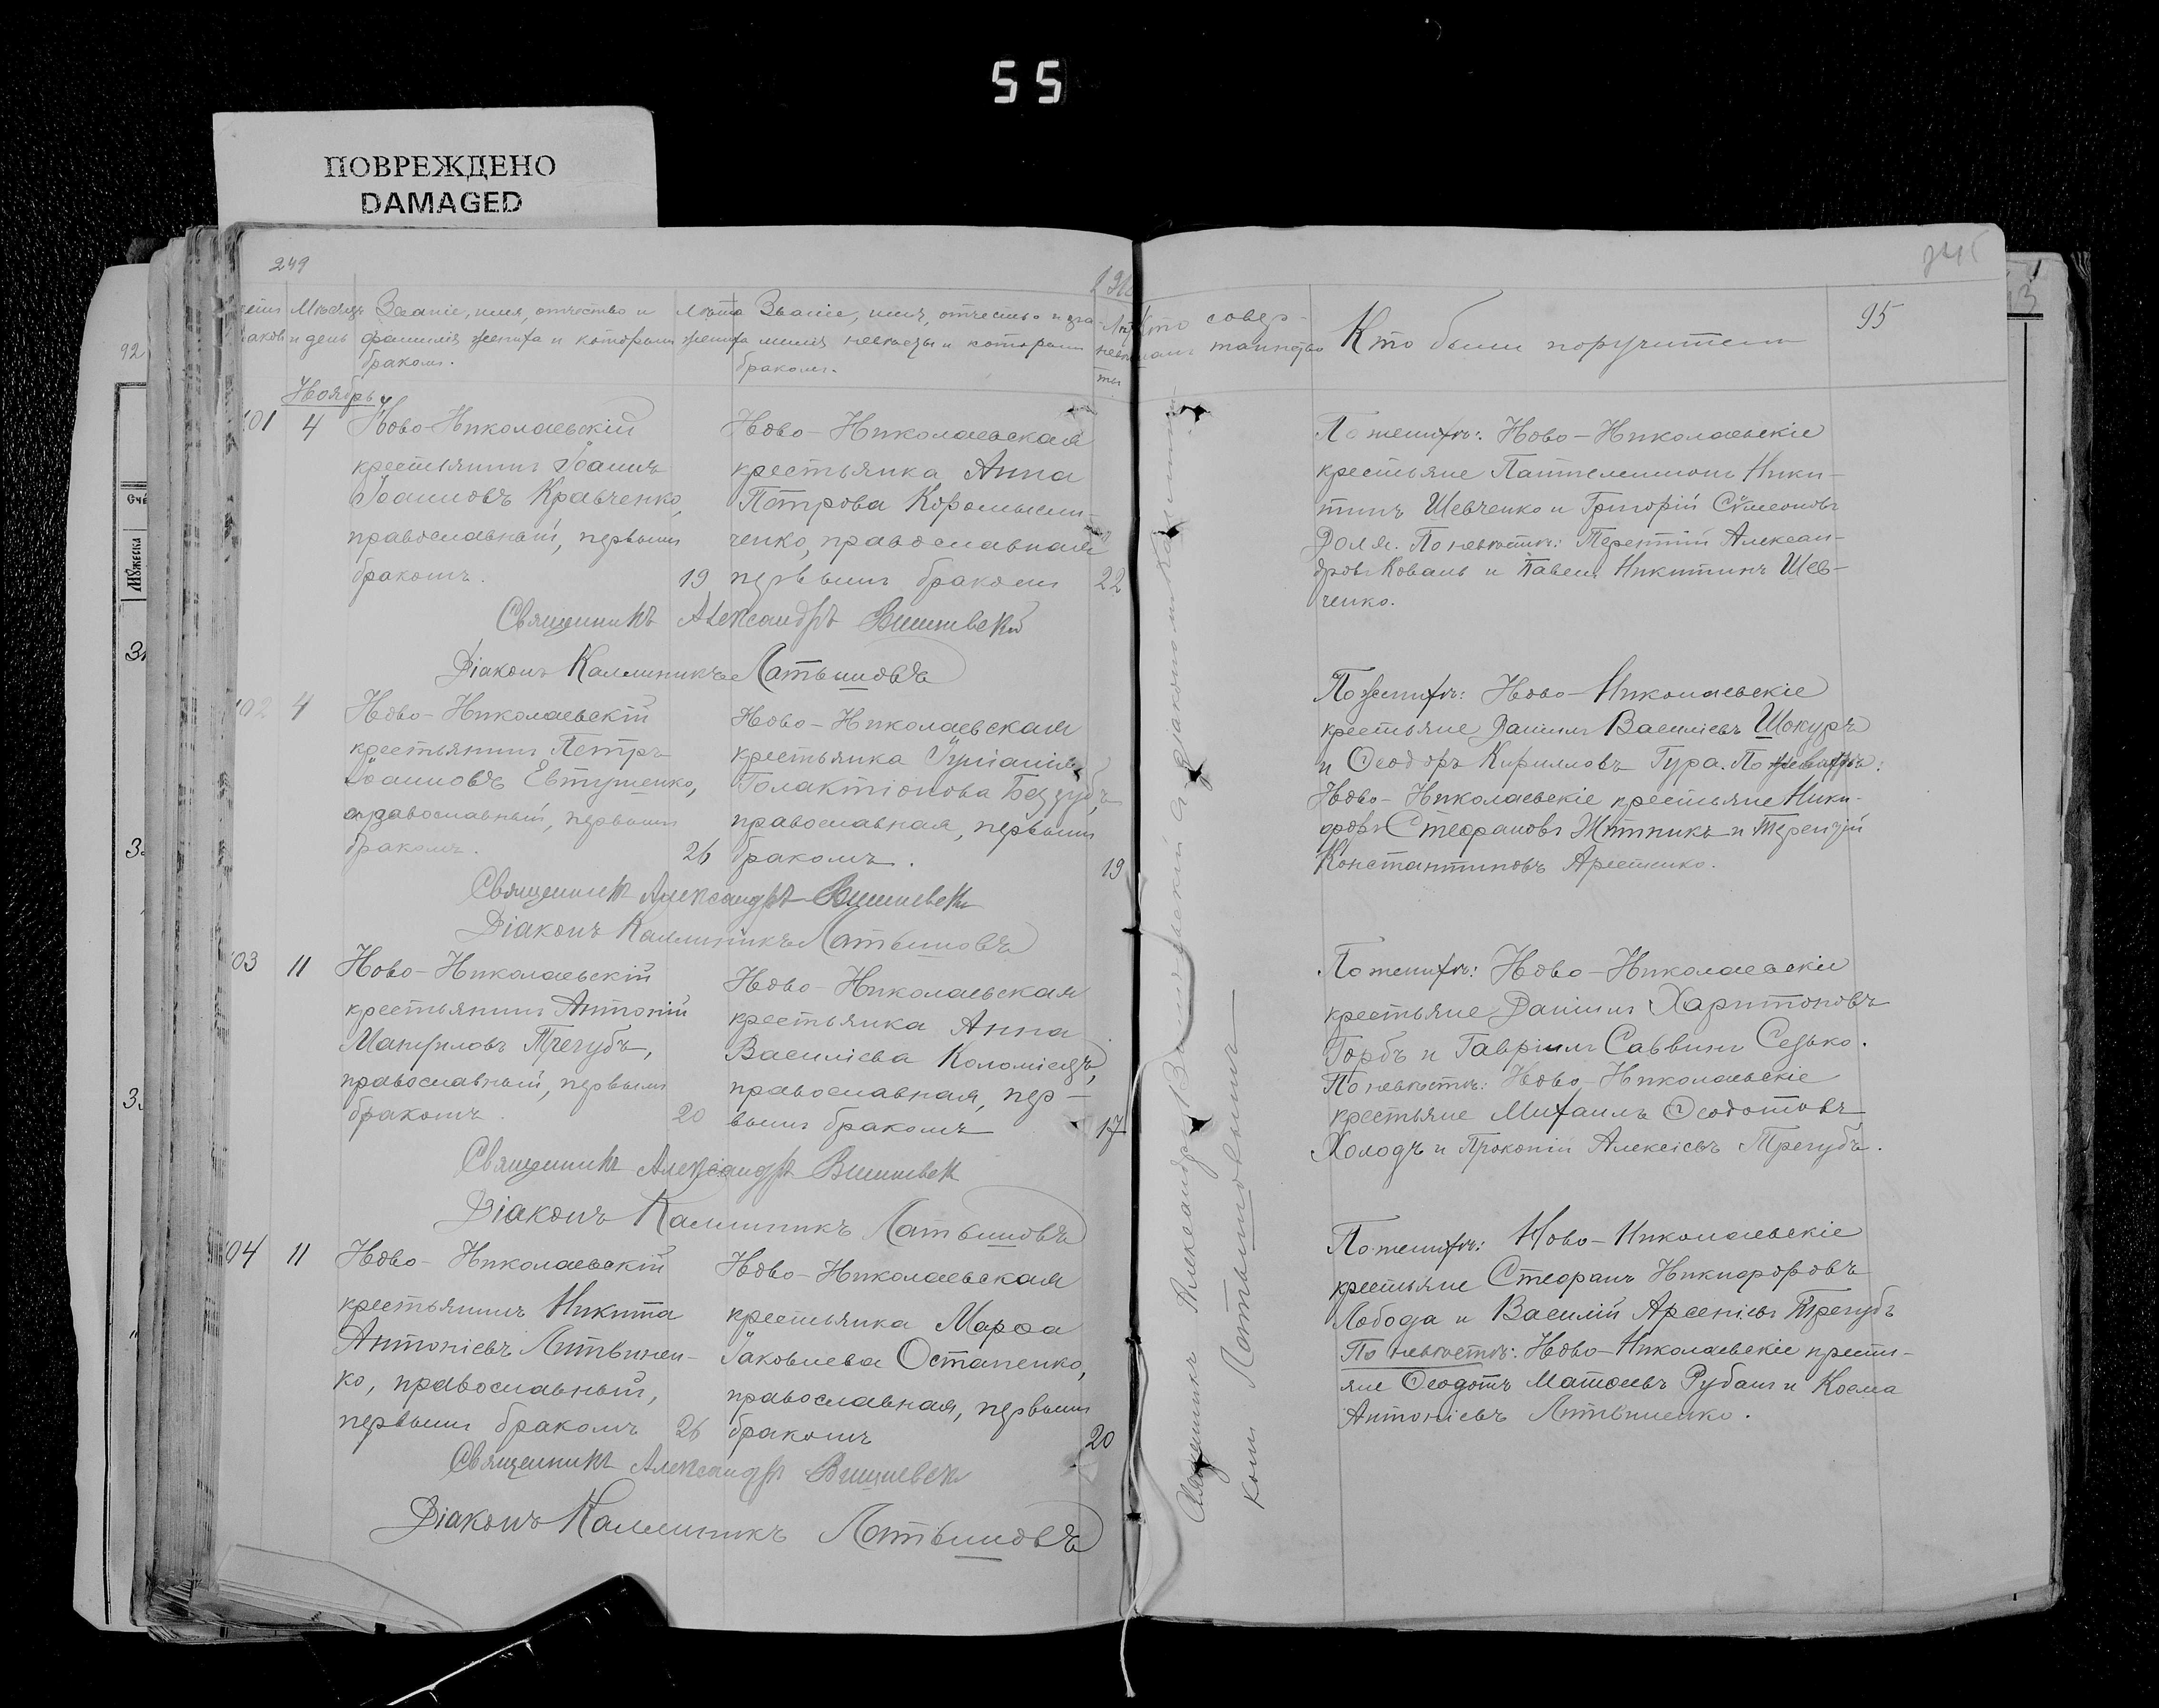 55
ПОВРЕЖДЕНО
DAMAGED
249
95
92
Мѣсяцъ и день
Званіе, имя, отчество и
фамилія жениха и которымъ
бракомъ.
Лѣта
жениха
Званіе, имя, отчество и фа-
милія невѣсты и которымъ
бракомъ.
Кто совер-
таинство
Кто были поручители
Ноябрь
101
4
Ново-Николаевскій
крестьянинъ Іоаннъ
Іоанновъ Кравченко,
православный, первымъ
бракомъ.
19
Ново-Николаевская
крестьянка Анна
Петрова Коромысли-
ченко, православная
первымъ бракомъ
22
Священникъ Александръ Вишневскій
Діаконъ Каллиникъ Латышовъ
По женихѣ: Ново-Николаевскіе
крестьяне Пантелеимонъ Ники-
тинъ Шевченко и Григорій Сѵмеоновъ
Доля. По невѣстѣ: Терентій Алексан-
дровъ Коваль и Павелъ Никитинъ Шев-
ченко.
102
4
Ново-Николаевскій
крестьянинъ Петръ
Іоанновъ Евтушенко,
православный, первымъ
бракомъ.
26
Ново-Николаевская
крестьянка Іуліанія
Галактіонова Беззубъ,
православная, первымъ
бракомъ.
19
Священникъ Александръ Вишневск
Діаконъ Каллиникъ Латышовъ
По женихѣ: Ново-Николаевскіе
крестьяне Даніилъ Василіевъ Шокуръ
и Ѳеодоръ Кирилловъ Гура. По
Ново-Николаевскіе крестьяне Ники-
форъ Стефановъ Житникъ и Терентій
Константиновъ
103
11
Ново-Николаевскій
крестьянинъ Антоній
Мануиловъ Трегубъ,
православный, первымъ
бракомъ.
20
Ново-Николаевская
крестьянка Анна
Василіева Коломіецъ,
православная, пер-
вымъ бракомъ
17
Священникъ Александръ Вишневск
Діаконъ Каллиникъ Латышовъ
По женихѣ: Ново-Николаевскіе
крестьяне Даніилъ Харитоновъ
Горбъ и Гавріилъ Саввинъ Сецько.
По невѣстѣ: Ново-Николаевскіе
крестьяне Михаилъ Ѳеодотовъ
Холодъ и Прокопій Алексіевъ Трегубъ.
104
11
Ново-Николаевскій
крестьянинъ Никита
Антоніевъ Литвинен-
ко, православный,
первымъ бракомъ
26
Ново-Николаевская
крестьянка Марѳа
Іаковлева Остапенко,
православная, первымъ
бракомъ
20
Священникъ Александръ Вишневск
Діаконъ Каллиникъ Латышовъ
По женихѣ: Ново-Николаевскіе
крестьяне Стефанъ Никифоровъ
Лобода и Василій Арсеніевъ Трегубъ
По невѣстѣ: Ново-Николаевскіе кресть-
яне Ѳеодотъ Матѳеевъ Рубанъ и Косма
Антоніевъ Литвиненко.
Священникъ Александръ Вишневскій съ діакономъ Каллини-
комъ Латышовымъ